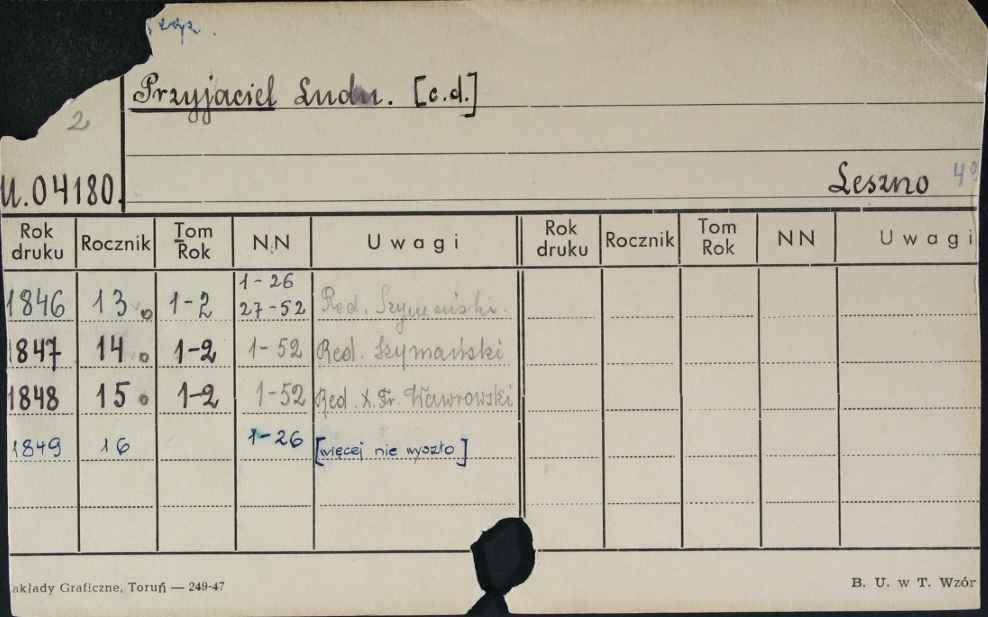 2
Przyjaciel Ludu. [c.d.]
U.04180.
Leszno 49
Rok druku Rocznik Tom Rok NN Uwagi Rok druku Rocznik Tom Rok NN Uwagi
1846 13 1-2 1-26 27-52 Red. Szymański.
1847 14 1-2 1-52 Red. Szymański
1848 15 1-2 1-52 Red. X. Fr. Wawrowski
1849 16 1-26 [więcej nie wyszło]
akłady Graficzne, Toruń — 249-47
B. U. w T. Wzór